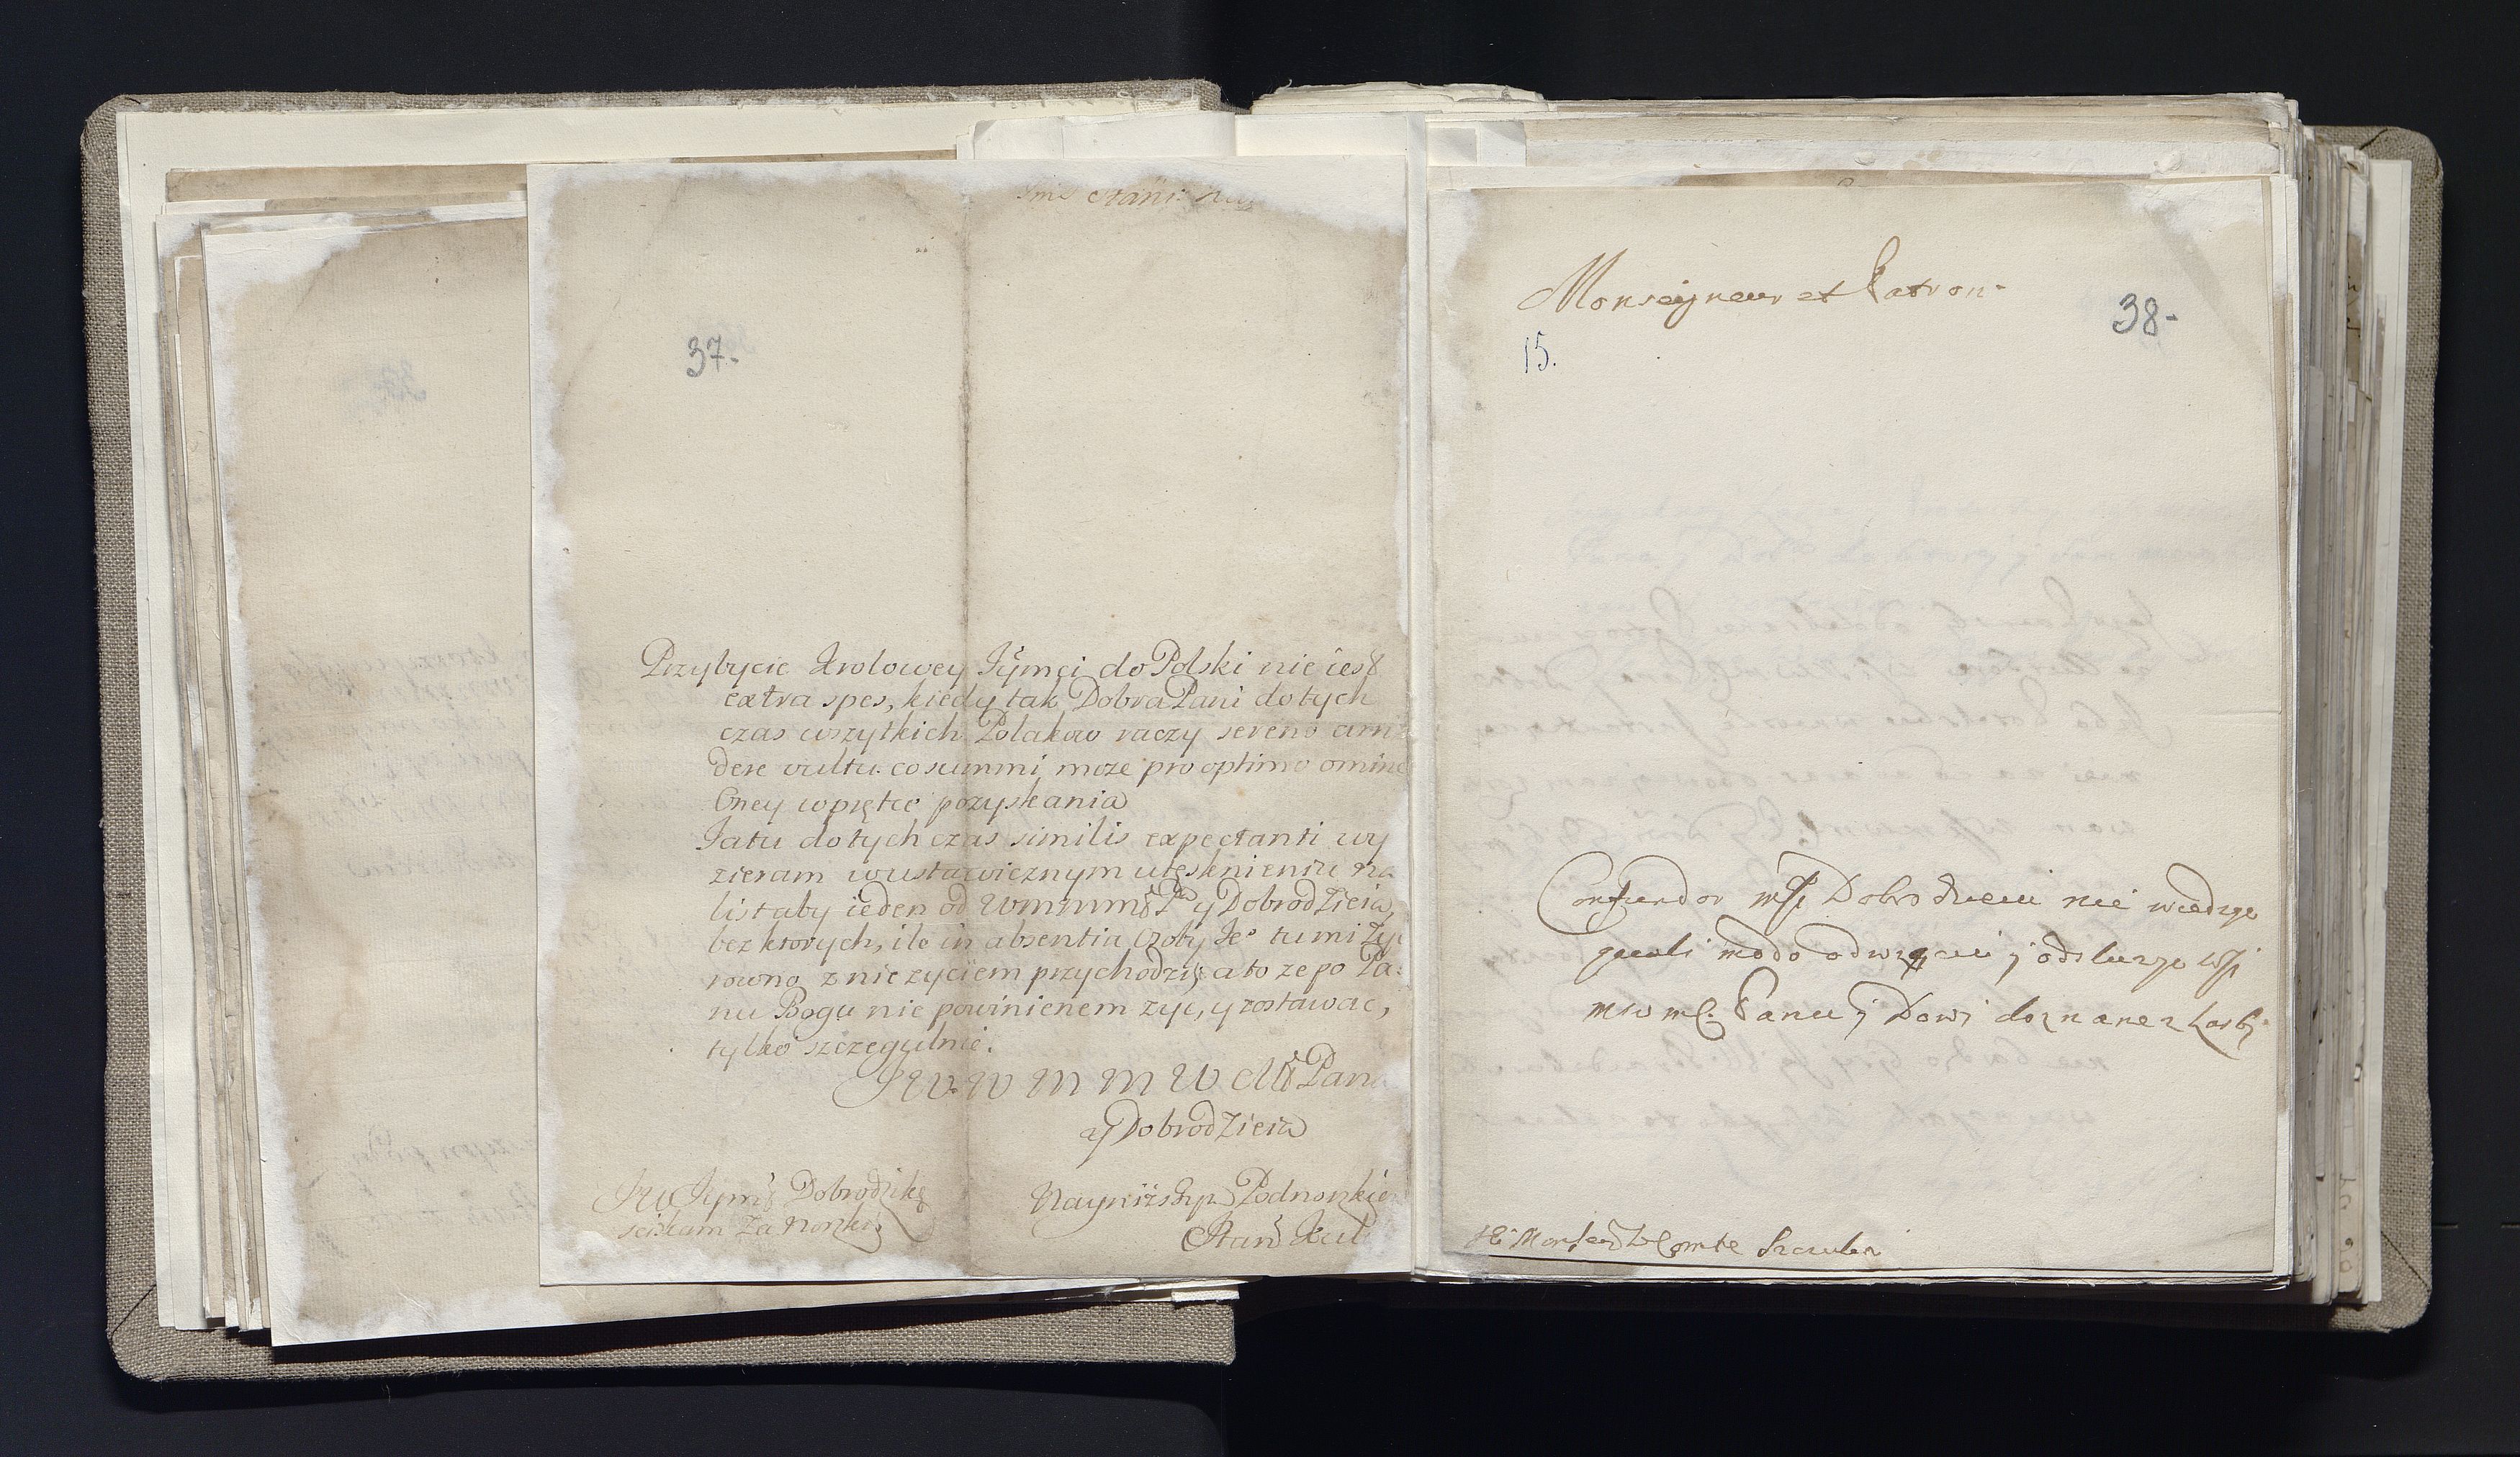 37.
Przybycie Krolowey Jymci do Polski nie iest
extra spes, kiedy tak Dobra Pani do tych
czas wszytkich Polakow raczy sereno arri
dere vultu. co summi moze pro optimo omine
Oney wprętce pozyskania
Ja tu do tych czas similis expectanti wy
zieram wustawicznym utęsknieniu na
list aby ieden od WMMM Pa y Dobrodzieia,
bez ktorych, ile in absentia Osoby Je° tu mi zyc
rowno z nie zyciem przychodzi, a to ze po Pa:
nu Bogu nie powinienem zyc, y zostawac,
tylko szczegulnie.
JW. W M M W Mś Pana
y Dobrodzieia
JW Jymś Dobrodzikę
sciskam za nozki
Nayniższym Podnozkiem
Stan Kul
Monseigneur et Patron.
38.
15.
Confundor mśi Dobrodzieiu nie wiedząc
quali modo odwzięcić j odsłuzyc wśj
mw mś. Panu j Dowi doznane z łaski
Monseig Le Comte Szczuka